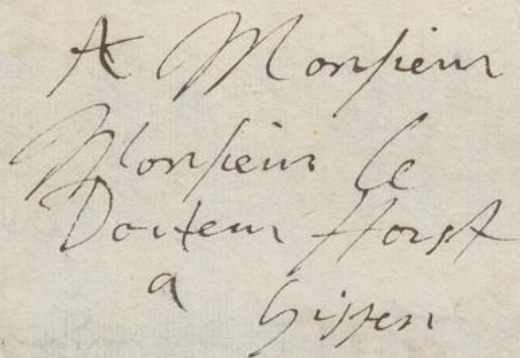 A Monsieur
Monsieur le
Docteur Horst
a
Gissen